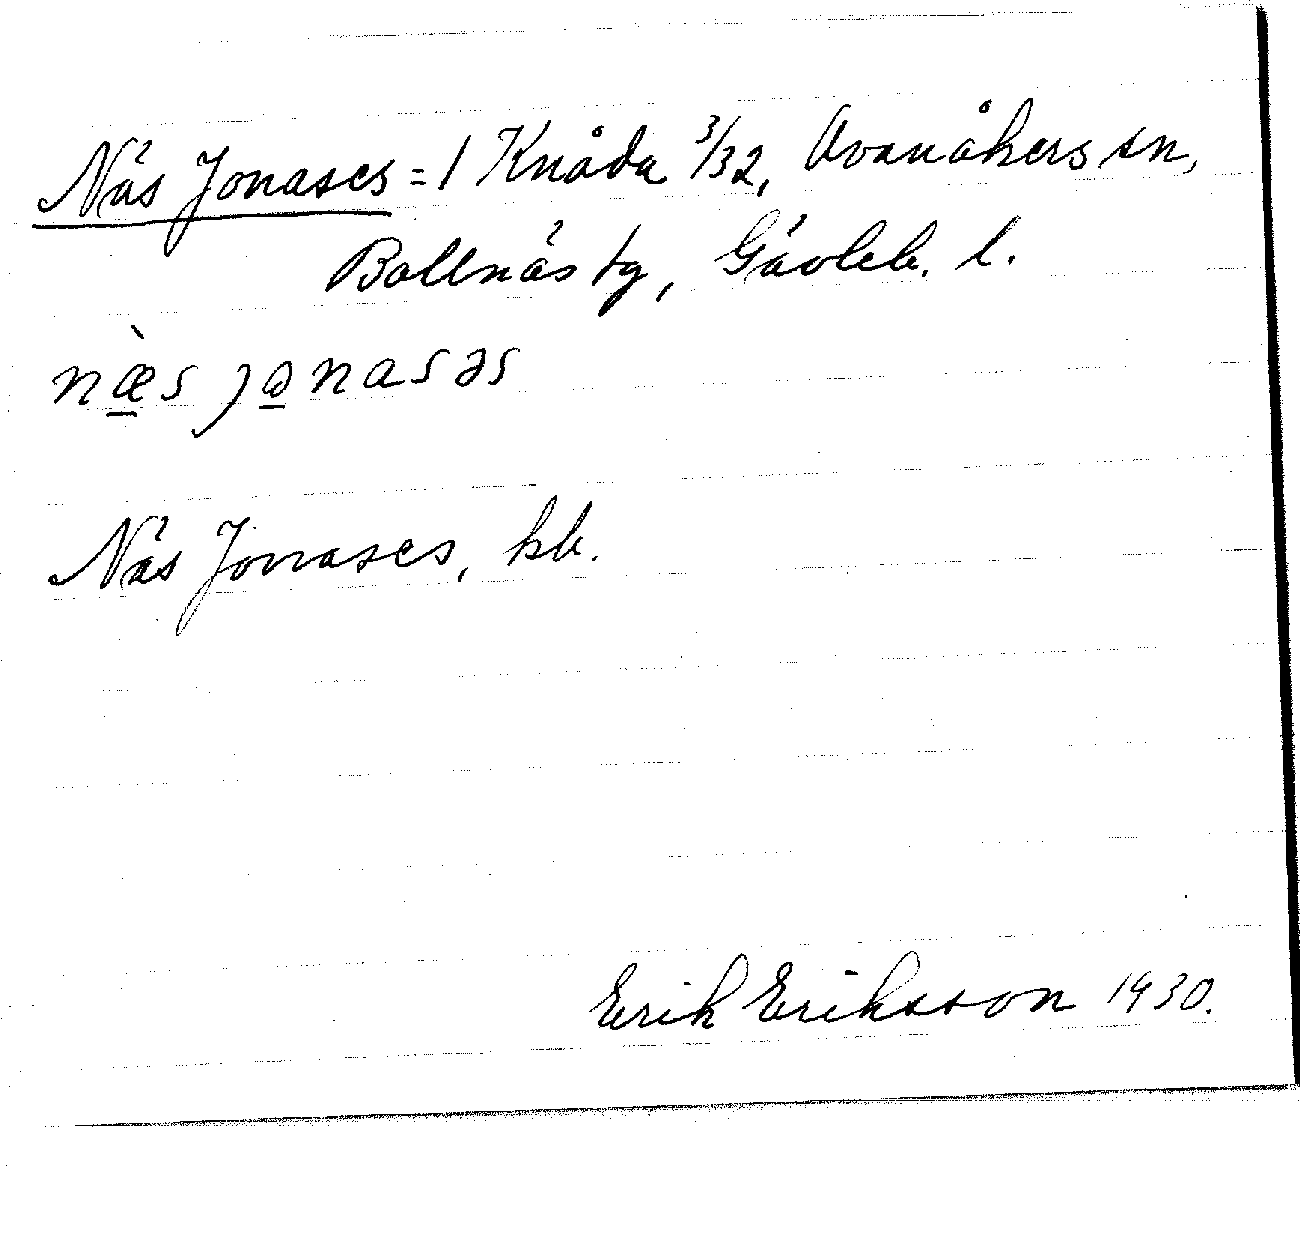 Näs Jonases = 1 Knåda 3/32, Ovanåkers sn,
Bollnäs tg, Gävleb. l.
næ̀s jonasəs
Näs Jonases, kb.
Erik Eriksson 1930.